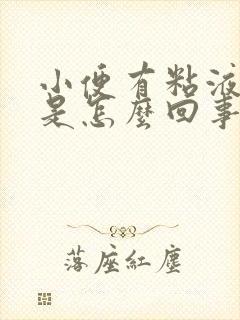 小便有粘液
是怎麼回事
落座紅塵